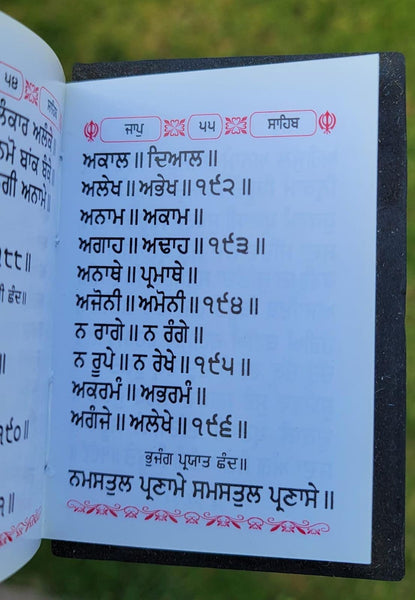 ੫੪
ਸਾਹਿ
ਅਨਾਮੇ
੧੮੮॥
ਛੰਦ॥
੧੯੦॥
ਜਾਪੁ ੫੫ ਸਾਹਿਬ
ਅਕਾਲ॥ ਦਿਆਲ॥
ਅਲੇਖ॥ ਅਭੇਖ॥੧੯੨॥
ਅਨਾਮ॥ ਅਕਾਮ॥
ਅਗਾਹ॥ ਅਢਾਹ॥੧੯੩॥
ਅਨਾਥੇ॥ ਪ੍ਰਮਾਥੇ॥
ਅਜੋਨੀ॥ ਅਮੋਨੀ॥੧੯੪॥
ਨ ਰਾਗੇ॥ ਨ ਰੰਗੇ॥
ਨ ਰੂਪੇ॥ ਨ ਰੇਖੇ॥੧੯੫॥
ਅਕਰਮੰ॥ ਅਭਰਮੰ॥
ਅਗੰਜੇ॥ ਅਲੇਖੇ॥੧੯੬॥
ਭੁਜੰਗ ਪ੍ਰਯਾਤ ਛੰਦ॥
ਨਮਸਤੁਲ ਪ੍ਰਣਾਮੇ ਸਮਸਤੁਲ ਪ੍ਰਣਾਸੇ॥